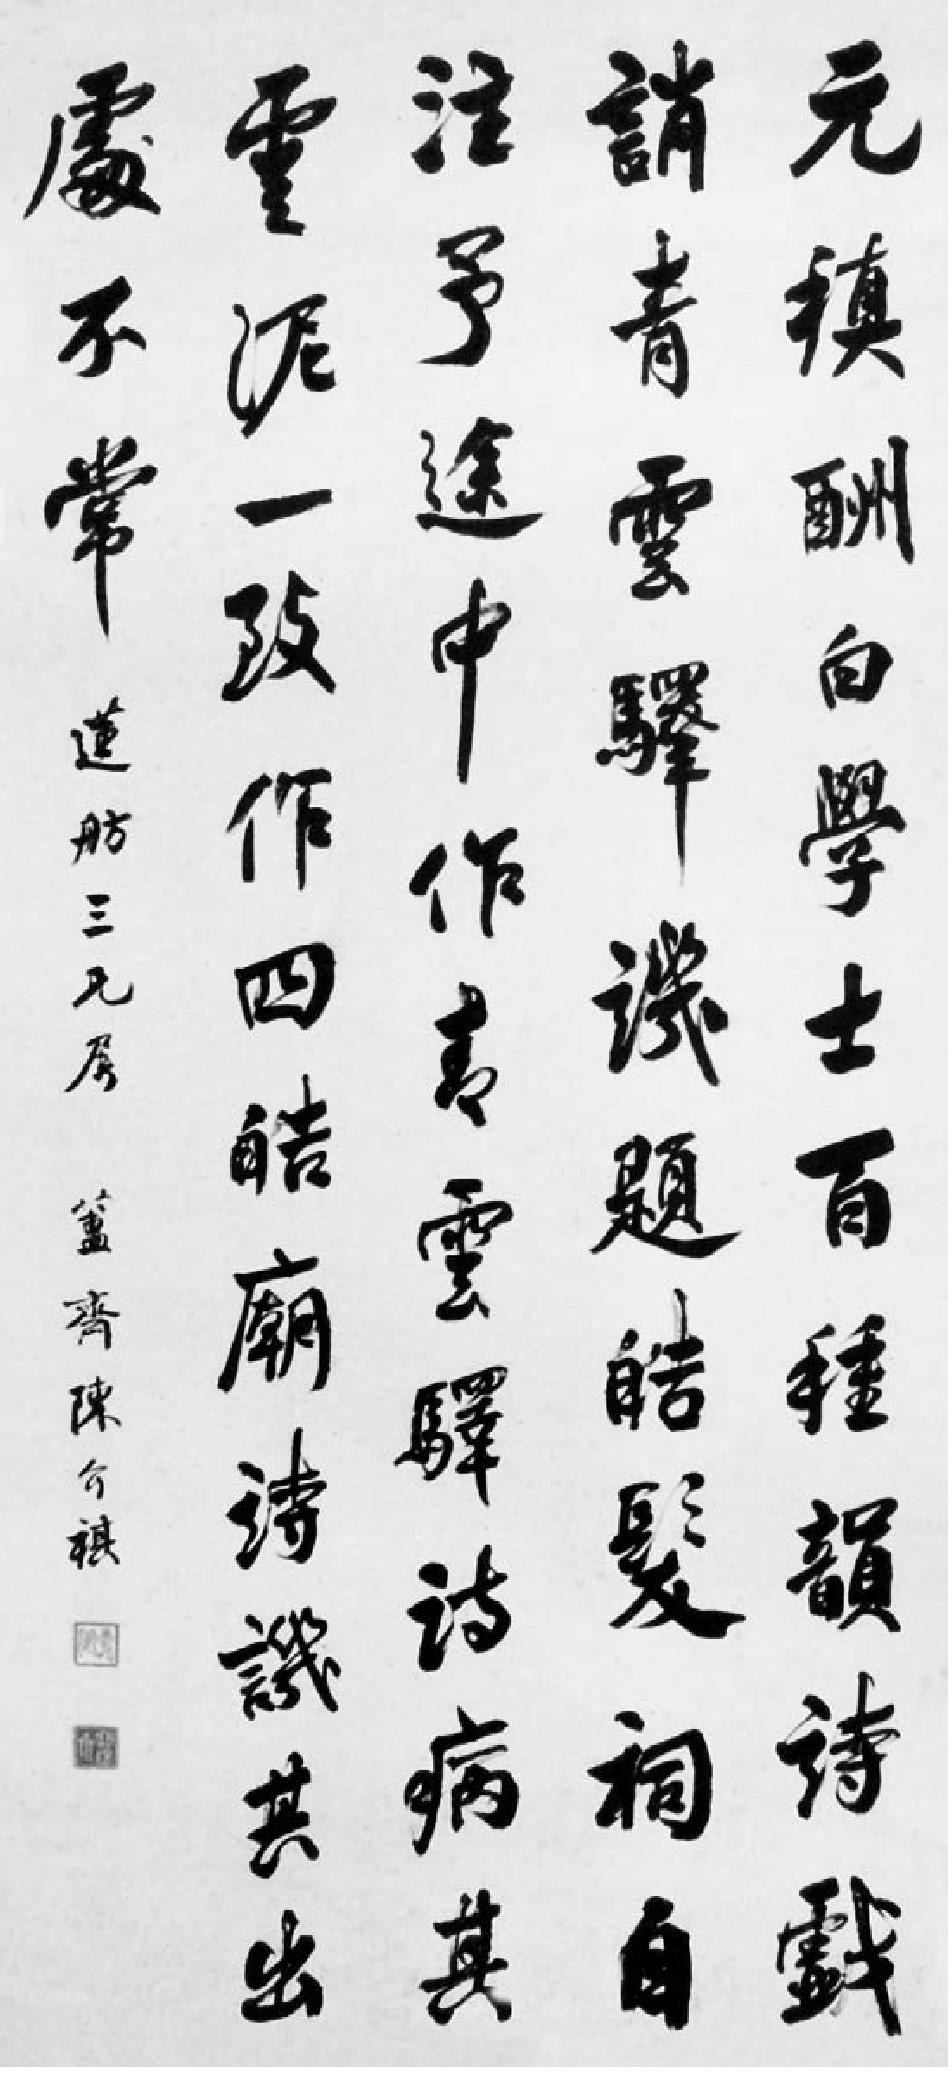 元稹酬白學士百種韻詩戲
誚青雲驛譏題皓髮祠自
注予途中作青雲驛詩病其
雲泥一致作四皓廟詩譏其出
處不常 蓮舫三兄屬 簠齋陳介祺